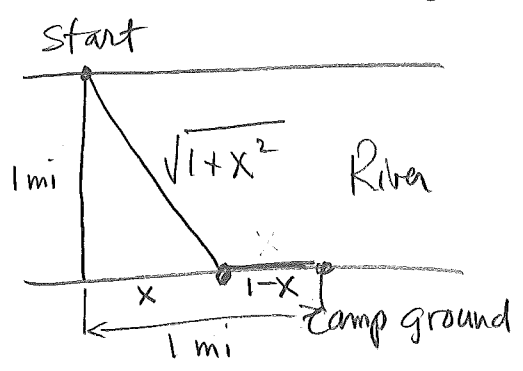 Start
1 mi
√1+x²
River
x
x
1-x
Camp ground
1 mi